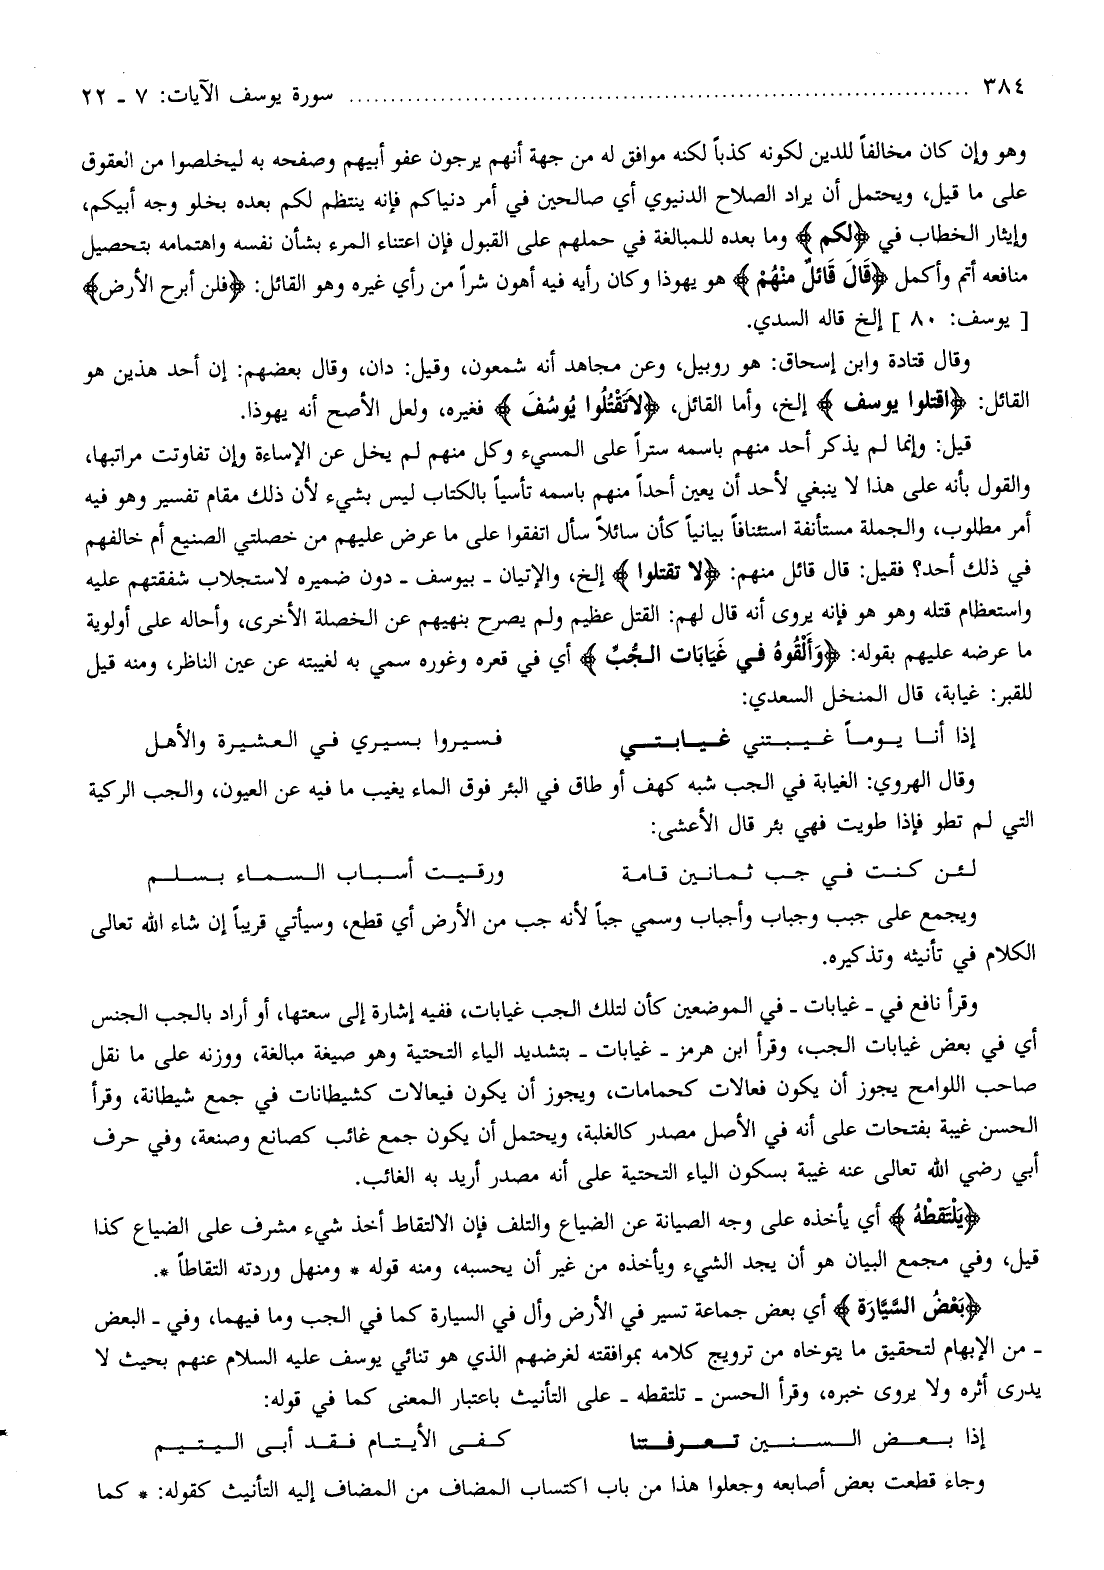 ٣٨٤ ........................................ سورة يوسف الآيات: ٧ ـ ٢٢
وهو وإن كان مخالفاً للدين لكونه كذباً لكنه موافق له من جهة أنهم يرجون عفو أبيهم وصفحه به ليخلصوا من العقوق
على ما قيل، ويحتمل أن يراد الصلاح الدنيوي أي صالحين في أمر دنياكم فإنه ينتظم لكم بعده بخلو وجه أبيكم،
وإيثار الخطاب في ﴿لكم﴾ وما بعده للمبالغة في حملهم على القبول فإن اعتناء المرء بشأن نفسه واهتمامه بتحصيل
منافعه أتم وأكمل ﴿قَالَ قَائلٌ منْهُمْ﴾ هو يهوذا وكان رأيه فيه أهون شراً من رأي غيره وهو القائل: ﴿فلن أبرح الأرض﴾
[ يوسف: ٨٠ ] إلخ قاله السدي.
وقال قتادة وابن إسحاق: هو روبيل، وعن مجاهد أنه شمعون، وقيل: دان، وقال بعضهم: إن أحد هذين هو
القائل: ﴿اقتلوا يوسف﴾ إلخ، وأما القائل، ﴿لاَتَقْتُلُوا يُوسُفَ﴾ فغيره، ولعل الأصح أنه يهوذا.
قيل: وإنما لم يذكر أحد منهم باسمه ستراً على المسيء وكل منهم لم يخل عن الإساءة وإن تفاوتت مراتبها،
والقول بأنه على هذا لا ينبغي لأحد أن يعين أحداً منهم باسمه تأسياً بالكتاب ليس بشيء لأن ذلك مقام تفسير وهو فيه
أمر مطلوب، والجملة مستأنفة استئنافاً بيانياً كأن سائلاً سأل اتفقوا على ما عرض عليهم من خصلتي الصنيع أم خالفهم
في ذلك أحد؟ فقيل: قال قائل منهم: ﴿لا تقتلوا﴾ إلخ، والإتيان ـ بيوسف ـ دون ضميره لاستجلاب شفقتهم عليه
واستعظام قتله وهو هو فإنه يروى أنه قال لهم: القتل عظيم ولم يصرح بنهيهم عن الخصلة الأخرى، وأحاله على أولوية
ما عرضه عليهم بقوله: ﴿وَأَلْقُوهُ فـي غَيَابَات الـجُبِّ﴾ أي في قعره وغوره سمي به لغيبته عن عين الناظر، ومنه قيل
للقبر: غيابة، قال المنخل السعدي:
إذا أنـا يـومـاً غـيـبـتني غـيـابـتـي فـسيروا بـسيري في الـعـشيرة والأهـل
وقال الهروي: الغيابة في الجب شبه كهف أو طاق في البئر فوق الماء يغيب ما فيه عن العيون، والجب الركية
التي لم تطو فإذا طويت فهي بئر قال الأعشى:
لـئـن كـنـت فـي جـب ثـمـانـين قـامـة ورقـيـت أسـبـاب الـسـمـاء بـسـلـم
ويجمع على جبب وجباب وأجباب وسمي جباً لأنه جب من الأرض أي قطع، وسيأتي قريباً إن شاء الله تعالى
الكلام في تأنيثه وتذكيره.
وقرأ نافع في ـ غيابات ـ في الموضعين كأن لتلك الجب غيابات، ففيه إشارة إلى سعتها، أو أراد بالجب الجنس
أي في بعض غيابات الجب، وقرأ ابن هرمز ـ غيابات ـ بتشديد الياء التحتية وهو صيغة مبالغة، ووزنه على ما نقل
صاحب اللوامح يجوز أن يكون فعالات كحمامات، ويجوز أن يكون فيعالات كشيطانات في جمع شيطانة، وقرأ
الحسن غيبة بفتحات على أنه في الأصل مصدر كالغلبة، ويحتمل أن يكون جمع غائب كصانع وصنعة، وفي حرف
أبي رضي الله تعالى عنه غيبة بسكون الياء التحتية على أنه مصدر أريد به الغائب.
﴿يَلْتَقطْهُ﴾ أي يأخذه على وجه الصيانة عن الضياع والتلف فإن الالتقاط أخذ شيء مشرف على الضياع كذا
قيل، وفي مجمع البيان هو أن يجد الشيء ويأخذه من غير أن يحسبه، ومنه قوله * ومنهل وردته التقاطاً *.
﴿بَعْضُ السَّيَّارَة﴾ أي بعض جماعة تسير في الأرض وأل في السيارة كما في الجب وما فيهما، وفي ـ البعض
ـ من الإبهام لتحقيق ما يتوخاه من ترويج كلامه بموافقته لغرضهم الذي هو تنائي يوسف عليه السلام عنهم بحيث لا
يدرى أثره ولا يروى خبره، وقرأ الحسن ـ تلتقطه ـ على التأنيث باعتبار المعنى كما في قوله:
إذا بـعـض الـسـنـين تـعـرفـتنا كـفـى الأيـتـام فـقـد أبـى الـيـتـيـم
وجاء قطعت بعض أصابعه وجعلوا هذا من باب اكتساب المضاف من المضاف إليه التأنيث كقوله: * كما